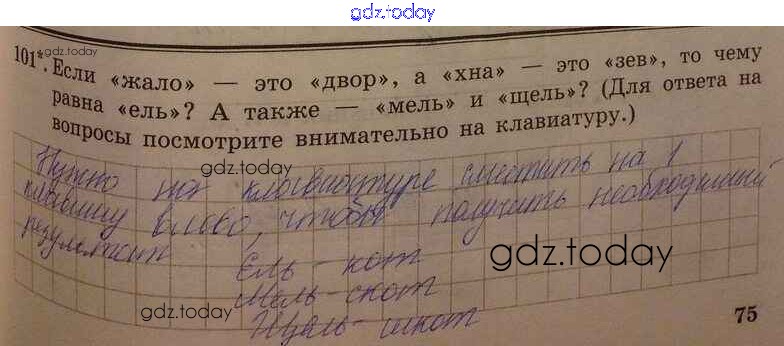 gdz.today
101*. Если «жало» — это «двор», а «хна» — это «зев», то чему
gdz.today
равна «ель»? А также — «мель» и «щель»? (Для ответа на
вопросы посмотрите внимательно на клавиатуру.)
Нужно на клавиатуре сместить на 1
gdz.today
клавишу влево, чтобы получить необходимый
результат
gdz.today
Ель - кот
Мель - скот
gdz.today
Щель - шкот
75